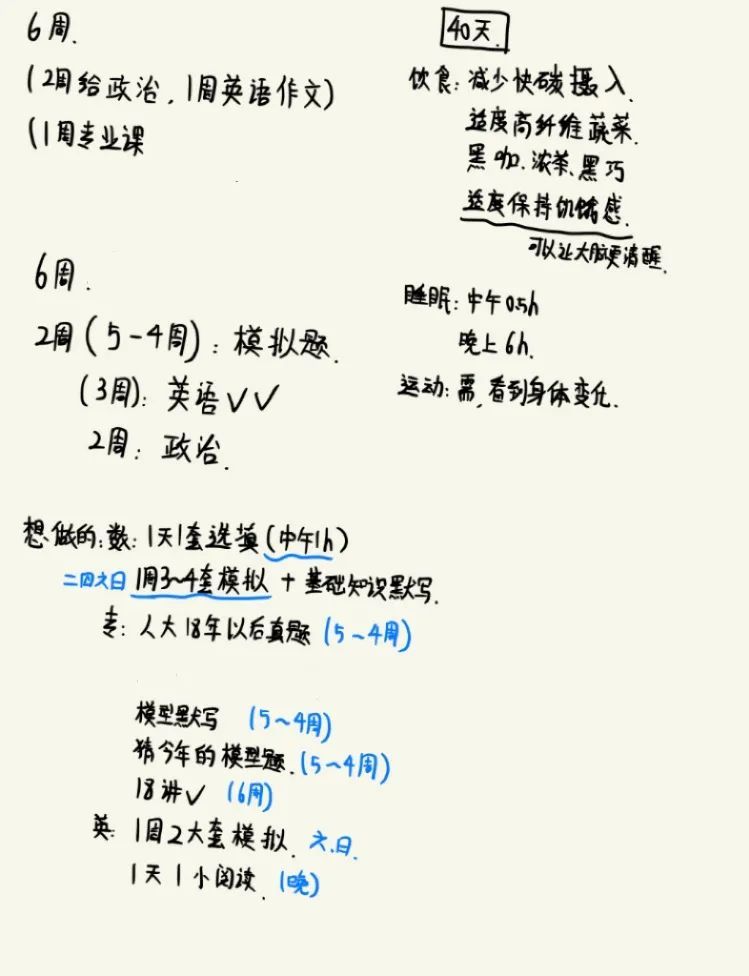 6周.
(2周给政治,1周英语作文)
(1周专业课
6周.
2周(5-4周):模拟题.
(3周):英语✓✓
2周:政治.
40天.
饮食:减少快碳摄入.
适度高纤维蔬菜.
黑咖.浓茶.黑巧
适度保持饥饿感.
可以让大脑更清醒.
睡眠:中午0.5h
晚上6h.
运动:需,看到身体变化.
想做的:数:1天1套选填(中午1h)
二四六日 1周3~4套模拟 + 基础知识默写.
专:人大18年以后真题(5~4周)
模型默写 (5~4周)
猜今年的模型题.(5~4周)
18讲✓ (6周)
英:1周2大套模拟.六.日.
1天1小阅读.(晚)